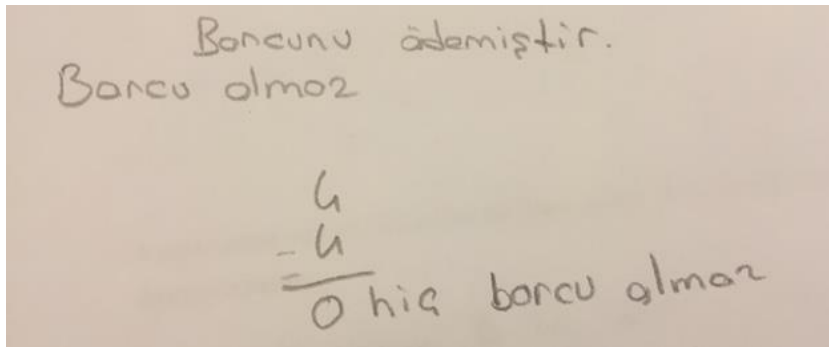 Borcunu ödemiştir.
Borcu olmaz
4
- 4
0 hiç borcu olmaz